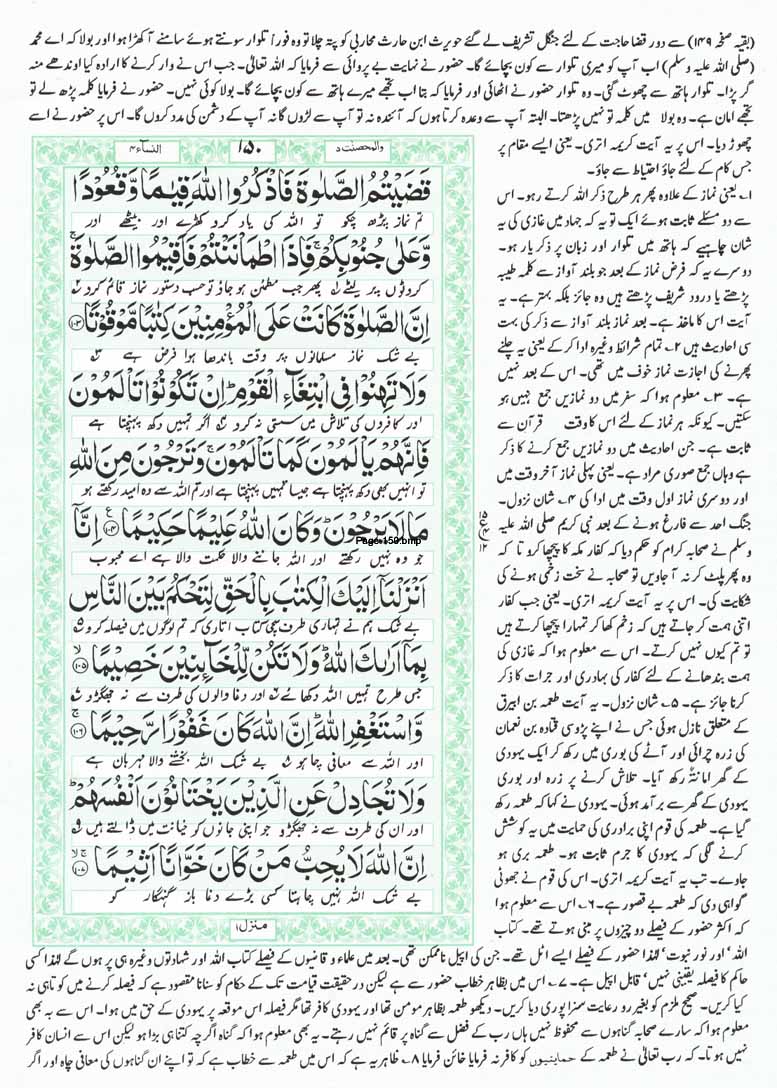 (بقیہ صفحہ ۱۴۹) سے دور قضا حاجت کے لئے جنگل تشریف لے گئے حویرث ابن حارث محاربی کو پتہ چلا تو وہ فوراً تلوار سونتے ہوئے سامنے آ کھڑا ہوا اور بولا کہ اے محمد
(صلی اللہ علیہ وسلم) اب آپ کو میری تلوار سے کون بچائے گا۔ حضور نے نہایت بے پروائی سے فرمایا کہ اللہ تعالیٰ۔ جب اس نے وار کرنے کا ارادہ کیا اوندھے منہ
گر پڑا۔ تلوار ہاتھ سے چھوٹ گئی۔ وہ تلوار حضور نے اٹھائی اور فرمایا کہ بتا اب تجھے میرے ہاتھ سے کون بچائے گا۔ بولا کوئی نہیں۔ حضور نے فرمایا کلمہ پڑھ لے تو
تجھے امان ہے۔ وہ بولا میں کلمہ تو نہیں پڑھتا۔ البتہ آپ سے وعدہ کرتا ہوں کہ آئندہ نہ تو آپ سے لڑوں گا نہ آپ کے دشمن کی مدد کروں گا۔ اس پر حضور نے اسے
چھوڑ دیا۔ اس پر یہ آیت کریمہ اتری۔ یعنی ایسے مقام پر
جس کام کے لئے جاؤ احتیاط سے جاؤ۔
۱۔ یعنی نماز کے علاوہ پھر ہر طرح ذکر اللہ کرتے رہو۔ اس
سے دو مسئلے ثابت ہوئے ایک تو یہ کہ جہاد میں غازی کی یہ
شان چاہیے کہ ہاتھ میں تلوار اور زبان پر ذکر یار ہو۔
دوسرے یہ کہ فرض نماز کے بعد جو بلند آواز سے کلمہ طیبہ
پڑھتے یا درود شریف پڑھتے ہیں وہ جائز بلکہ بہتر ہے۔ یہ
آیت اس کا ماخذ ہے۔ بعد نماز بلند آواز سے ذکر کی بہت
سی احادیث ہیں ۲۔ تمام شرائط وغیرہ ادا کر کے یعنی یہ چلنے
پھرنے کی اجازت نماز خوف میں تھی۔ اس کے بعد نہیں
ہے۔ ۳۔ معلوم ہوا کہ سفر میں دو نمازیں جمع نہیں ہو
سکتیں۔ کیونکہ ہر نماز کے لئے اس کا وقت قرآن سے
ثابت ہے۔ جن احادیث میں دو نمازیں جمع کرنے کا ذکر
ہے وہاں جمع صوری مراد ہے۔ یعنی پہلی نماز آخر وقت میں
اور دوسری نماز اول وقت میں ادا کی ۴۔ شان نزول۔
جنگ احد سے فارغ ہونے کے بعد نبی کریم صلی اللہ علیہ
وسلم نے صحابہ کرام کو حکم دیا کہ کفار مکہ کا پیچھا کرو تا کہ
وہ پھر پلٹ کر نہ آ جاویں تو صحابہ نے سخت زخمی ہونے کی
شکایت کی۔ اس پر یہ آیت کریمہ اتری۔ یعنی جب کفار
اتنی ہمت کر جاتے ہیں کہ زخم کھا کر تمہارا پیچھا کرتے ہیں
تو تم کیوں نہیں کرتے۔ اس سے معلوم ہوا کہ غازی کی
ہمت بندھانے کے لئے کفار کی بہادری اور جرات کا ذکر
کرنا جائز ہے۔ ۵۔ شان نزول۔ یہ آیت طعمہ بن ابیرق
کے متعلق نازل ہوئی جس نے اپنے پڑوسی قتادہ بن نعمان
کی زرہ چرائی اور آٹے کی بوری میں رکھ کر ایک یہودی
کے گھر امانتہ رکھ آیا۔ تلاش کرنے پر زرہ اور بوری
یہودی کے گھر سے برآمد ہوئی۔ یہودی نے کہا کہ طعمہ رکھ
گیا ہے۔ طعمہ کی قوم اپنی برادری کی حمایت میں یہ کوشش
کرنے لگی کہ یہودی کا جرم ثابت ہو۔ طعمہ بری ہو
جاوے۔ تب یہ آیت کریمہ اتری۔ اس کی قوم نے جھوٹی
گواہی دی کہ طعمہ بے قصور ہے۔ ۶۔ اس سے معلوم ہوا
کہ اکثر حضور کے فیصلے دو چیزوں پر مبنی ہوتے تھے۔ کتاب
والمحصنٰت ۵
۱۵۰
النسآء ۴
قَضَیْتُمُ الصَّلٰوةَ فَاذْكُرُوا اللّٰهَ قِیٰمًا وَّقُعُوْدًا
تم نماز پڑھ چکو تو اللہ کی یاد کرو کھڑے اور بیٹھے اور
وَّعَلٰی جُنُوْبِكُمْ ۚ فَاِذَا اطْمَاْنَنْتُمْ فَاَقِیْمُوا الصَّلٰوةَ ۚ
کروٹوں پر لیٹے ۱ پھر جب مطمئن ہو جاؤ تو حسب دستور نماز قائم کرو ۲
اِنَّ الصَّلٰوةَ كَانَتْ عَلَی الْمُؤْمِنِیْنَ كِتٰبًا مَّوْقُوْتًا ۱۰۳
بے شک نماز مسلمانوں پر وقت باندھا ہوا فرض ہے ۳
وَلَا تَهِنُوْا فِی ابْتِغَآءِ الْقَوْمِ ؕ اِنْ تَكُوْنُوْا تَاْلَمُوْنَ
اور کافروں کی تلاش میں سستی نہ کرو ۴ اگر تمہیں دکھ پہنچتا ہے
فَاِنَّهُمْ یَاْلَمُوْنَ كَمَا تَاْلَمُوْنَ ۚ وَتَرْجُوْنَ مِنَ اللّٰهِ
تو انہیں بھی دکھ پہنچتا ہے جیسا تمہیں پہنچتا ہے اور تم اللہ سے وہ امید رکھتے ہو
مَا لَا یَرْجُوْنَ ؕ وَكَانَ اللّٰهُ عَلِیْمًا حَكِیْمًا ۱۰۴ ع اِنَّاۤ
Page-150.bmp
جو وہ نہیں رکھتے اور اللہ جاننے والا حکمت والا ہے اے محبوب
اَنْزَلْنَاۤ اِلَیْكَ الْكِتٰبَ بِالْحَقِّ لِتَحْكُمَ بَیْنَ النَّاسِ
بے شک ہم نے تمہاری طرف سچی کتاب اتاری کہ تم لوگوں میں فیصلہ کرو ۵
بِمَاۤ اَرٰىكَ اللّٰهُ ؕ وَلَا تَكُنْ لِّلْخَآىِٕنِیْنَ خَصِیْمًا ۱۰۵ ۙ
جس طرح تمہیں اللہ دکھائے ۶ اور دغا والوں کی طرف سے نہ جھگڑو ۷
وَّاسْتَغْفِرِ اللّٰهَ ؕ اِنَّ اللّٰهَ كَانَ غَفُوْرًا رَّحِیْمًا ۱۰۶ ۚ
اور اللہ سے معافی چاہو ۸ بے شک اللہ بخشنے والا مہربان ہے
وَلَا تُجَادِلْ عَنِ الَّذِیْنَ یَخْتَانُوْنَ اَنْفُسَهُمْ ؕ
اور ان کی طرف سے نہ جھگڑو جو اپنی جانوں کو خیانت میں ڈالتے ہیں ۹
اِنَّ اللّٰهَ لَا یُحِبُّ مَنْ كَانَ خَوَّانًا اَثِیْمًا ۱۰۷ ۚۙ
بے شک اللہ نہیں چاہتا کسی بڑے دغا باز گنہگار کو
منزل۱
اللہ' اور نور نبوت' لہٰذا حضور کے فیصلے ایسے اٹل تھے۔ جن کی اپیل ناممکن تھی۔ بعد میں علماء و قاضیوں کے فیصلے کتاب اللہ اور شہادتوں وغیرہ ہی پر ہوں گے لہٰذا کسی
حاکم کا فیصلہ یقینی نہیں' قابل اپیل ہے۔ ۷۔ اس میں بظاہر خطاب حضور سے ہے لیکن درحقیقت قیامت تک کے حکام کو سنانا مقصود ہے کہ فیصلہ کرنے میں کوتاہی نہ
کیا کریں۔ صحیح ملزم کو بغیر رو رعایت سزا پوری دیا کریں۔ دیکھو طعمہ بظاہر مومن تھا اور یہودی کافر تھا مگر فیصلہ اس موقعہ پر یہودی کے حق میں ہوا۔ اس سے یہ بھی
معلوم ہوا کہ سارے صحابہ گناہوں سے محفوظ نہیں ہاں رب کے فضل سے گناہ پر قائم نہیں رہتے۔ یہ بھی معلوم ہوا کہ گناہ اگرچہ کتنا ہی بڑا ہو لیکن اس سے انسان کافر
نہیں ہوتا۔ کہ رب تعالیٰ نے طعمہ کے حمایتیوں کو کافر نہ فرمایا خائن فرمایا ۸۔ ظاہر یہ ہے کہ اس میں طعمہ سے خطاب ہے کہ تو اپنے ان گناہوں کی معافی چاہ اور اگر